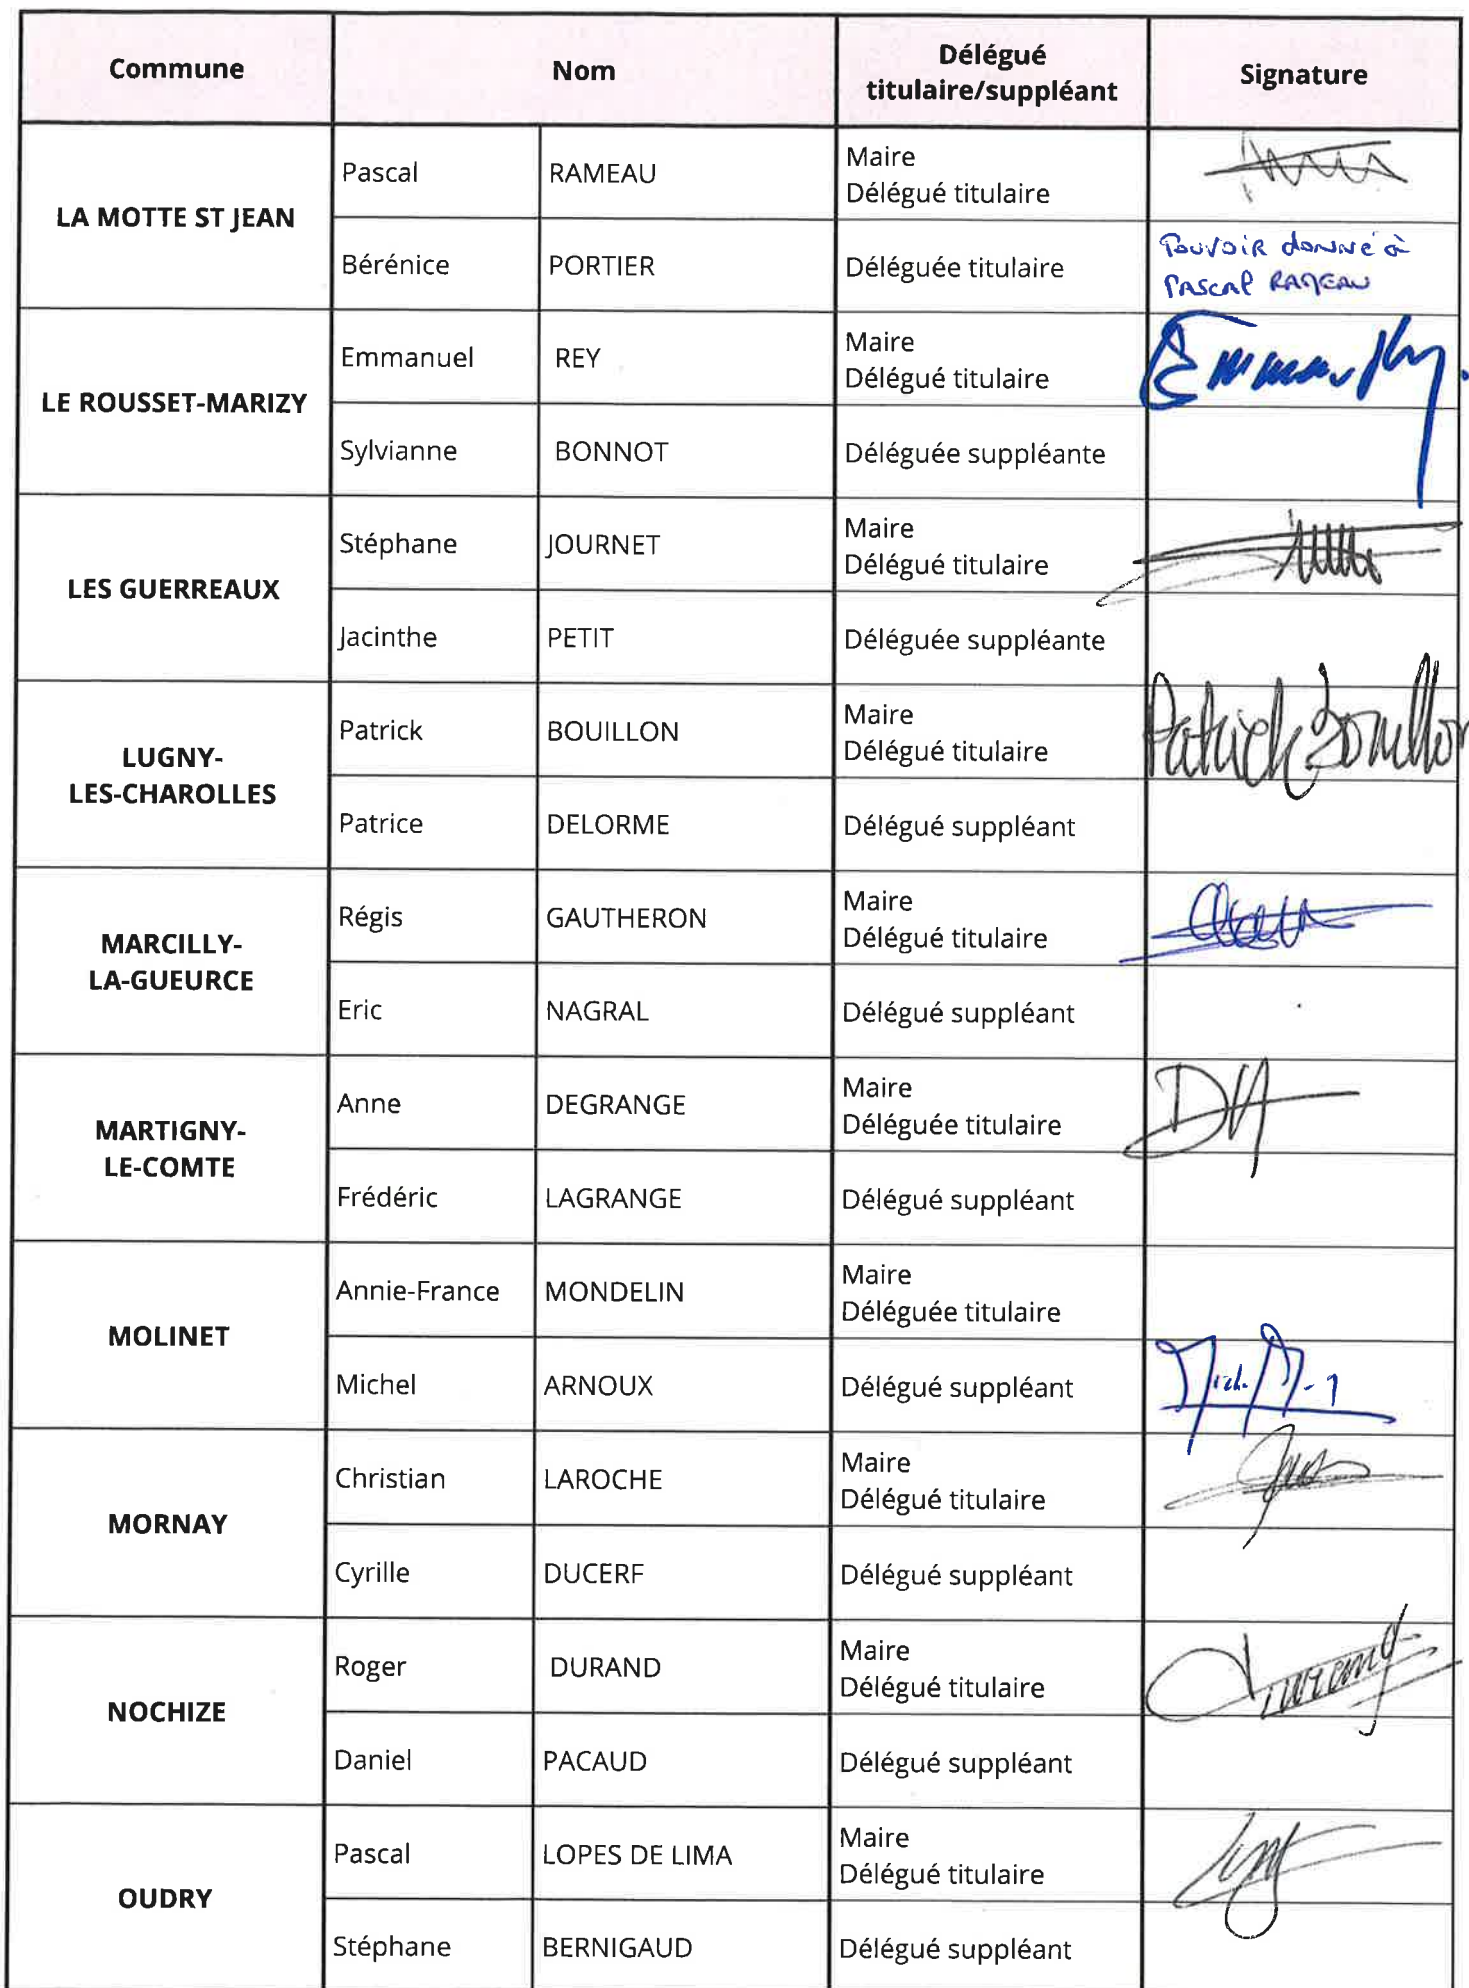 Commune Nom Délégué titulaire/suppléant Signature
LA MOTTE ST JEAN
Pascal RAMEAU Maire
Délégué titulaire
Bérénice PORTIER Déléguée titulaire
Pouvoir donné à
Pascal RAMEAU
LE ROUSSET-MARIZY
Emmanuel REY Maire
Délégué titulaire
Sylvianne BONNOT Déléguée suppléante
LES GUERREAUX
Stéphane JOURNET Maire
Délégué titulaire
Jacinthe PETIT Déléguée suppléante
LUGNY-
LES-CHAROLLES
Patrick BOUILLON Maire
Délégué titulaire
Patrick Bouillon
Patrice DELORME Délégué suppléant
MARCILLY-
LA-GUEURCE
Régis GAUTHERON Maire
Délégué titulaire
Eric NAGRAL Délégué suppléant
MARTIGNY-
LE-COMTE
Anne DEGRANGE Maire
Déléguée titulaire
Frédéric LAGRANGE Délégué suppléant
MOLINET
Annie-France MONDELIN Maire
Déléguée titulaire
Michel ARNOUX Délégué suppléant
MORNAY
Christian LAROCHE Maire
Délégué titulaire
Cyrille DUCERF Délégué suppléant
NOCHIZE
Roger DURAND Maire
Délégué titulaire
Daniel PACAUD Délégué suppléant
OUDRY
Pascal LOPES DE LIMA Maire
Délégué titulaire
Stéphane BERNIGAUD Délégué suppléant